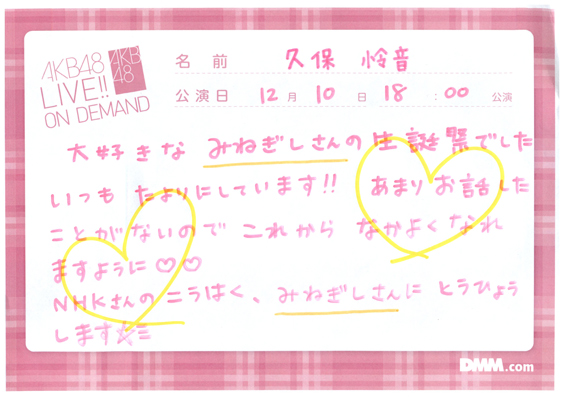 AKB48
LIVE!!
ON DEMAND
AKB
48
名前 久保 怜音
公演日 12月10日 18:00公演
大好きな みねぎしさんの 生誕祭でした
いつも たよりにしています!! あまり お話した
ことがないので これから なかよくなれ
ますように♡♡
NHKさんの こうはく、みねぎしさんに とうひょう
します☆ミ
DMM.com